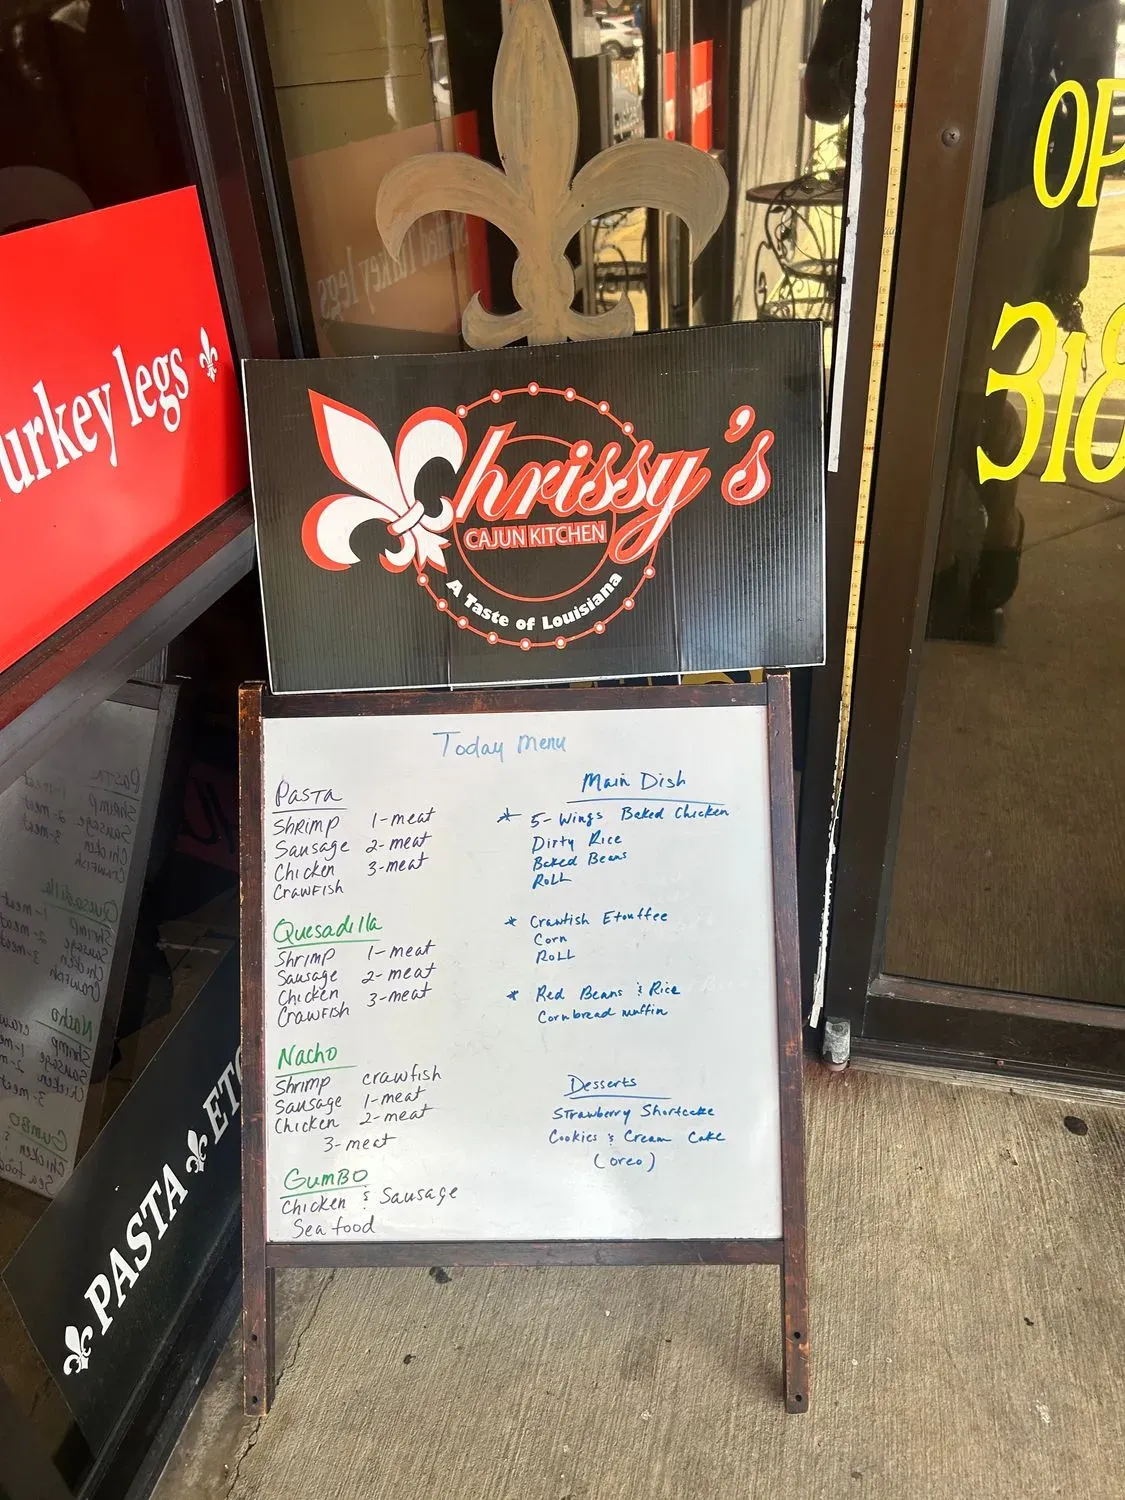 OP
318
urkey legs
Chrissy's
CAJUN KITCHEN
A Taste of Louisiana
Today Menu
Pasta
Shrimp 1-meat
Sausage 2-meat
Chicken 3-meat
Crawfish
Quesadilla
Shrimp 1-meat
Sausage 2-meat
Chicken 3-meat
Crawfish
Nacho
Shrimp crawfish
Sausage 1-meat
Chicken 2-meat
3-meat
Gumbo
Chicken & Sausage
Sea food
Main Dish
* 5-Wings Baked Chicken
Dirty Rice
Baked Beans
Roll
* Crawfish Etouffee
Corn
Roll
* Red Beans & Rice
Cornbread muffin
Desserts
Strawberry Shortcake
Cookies & Cream Cake
(oreo)
PASTA ET